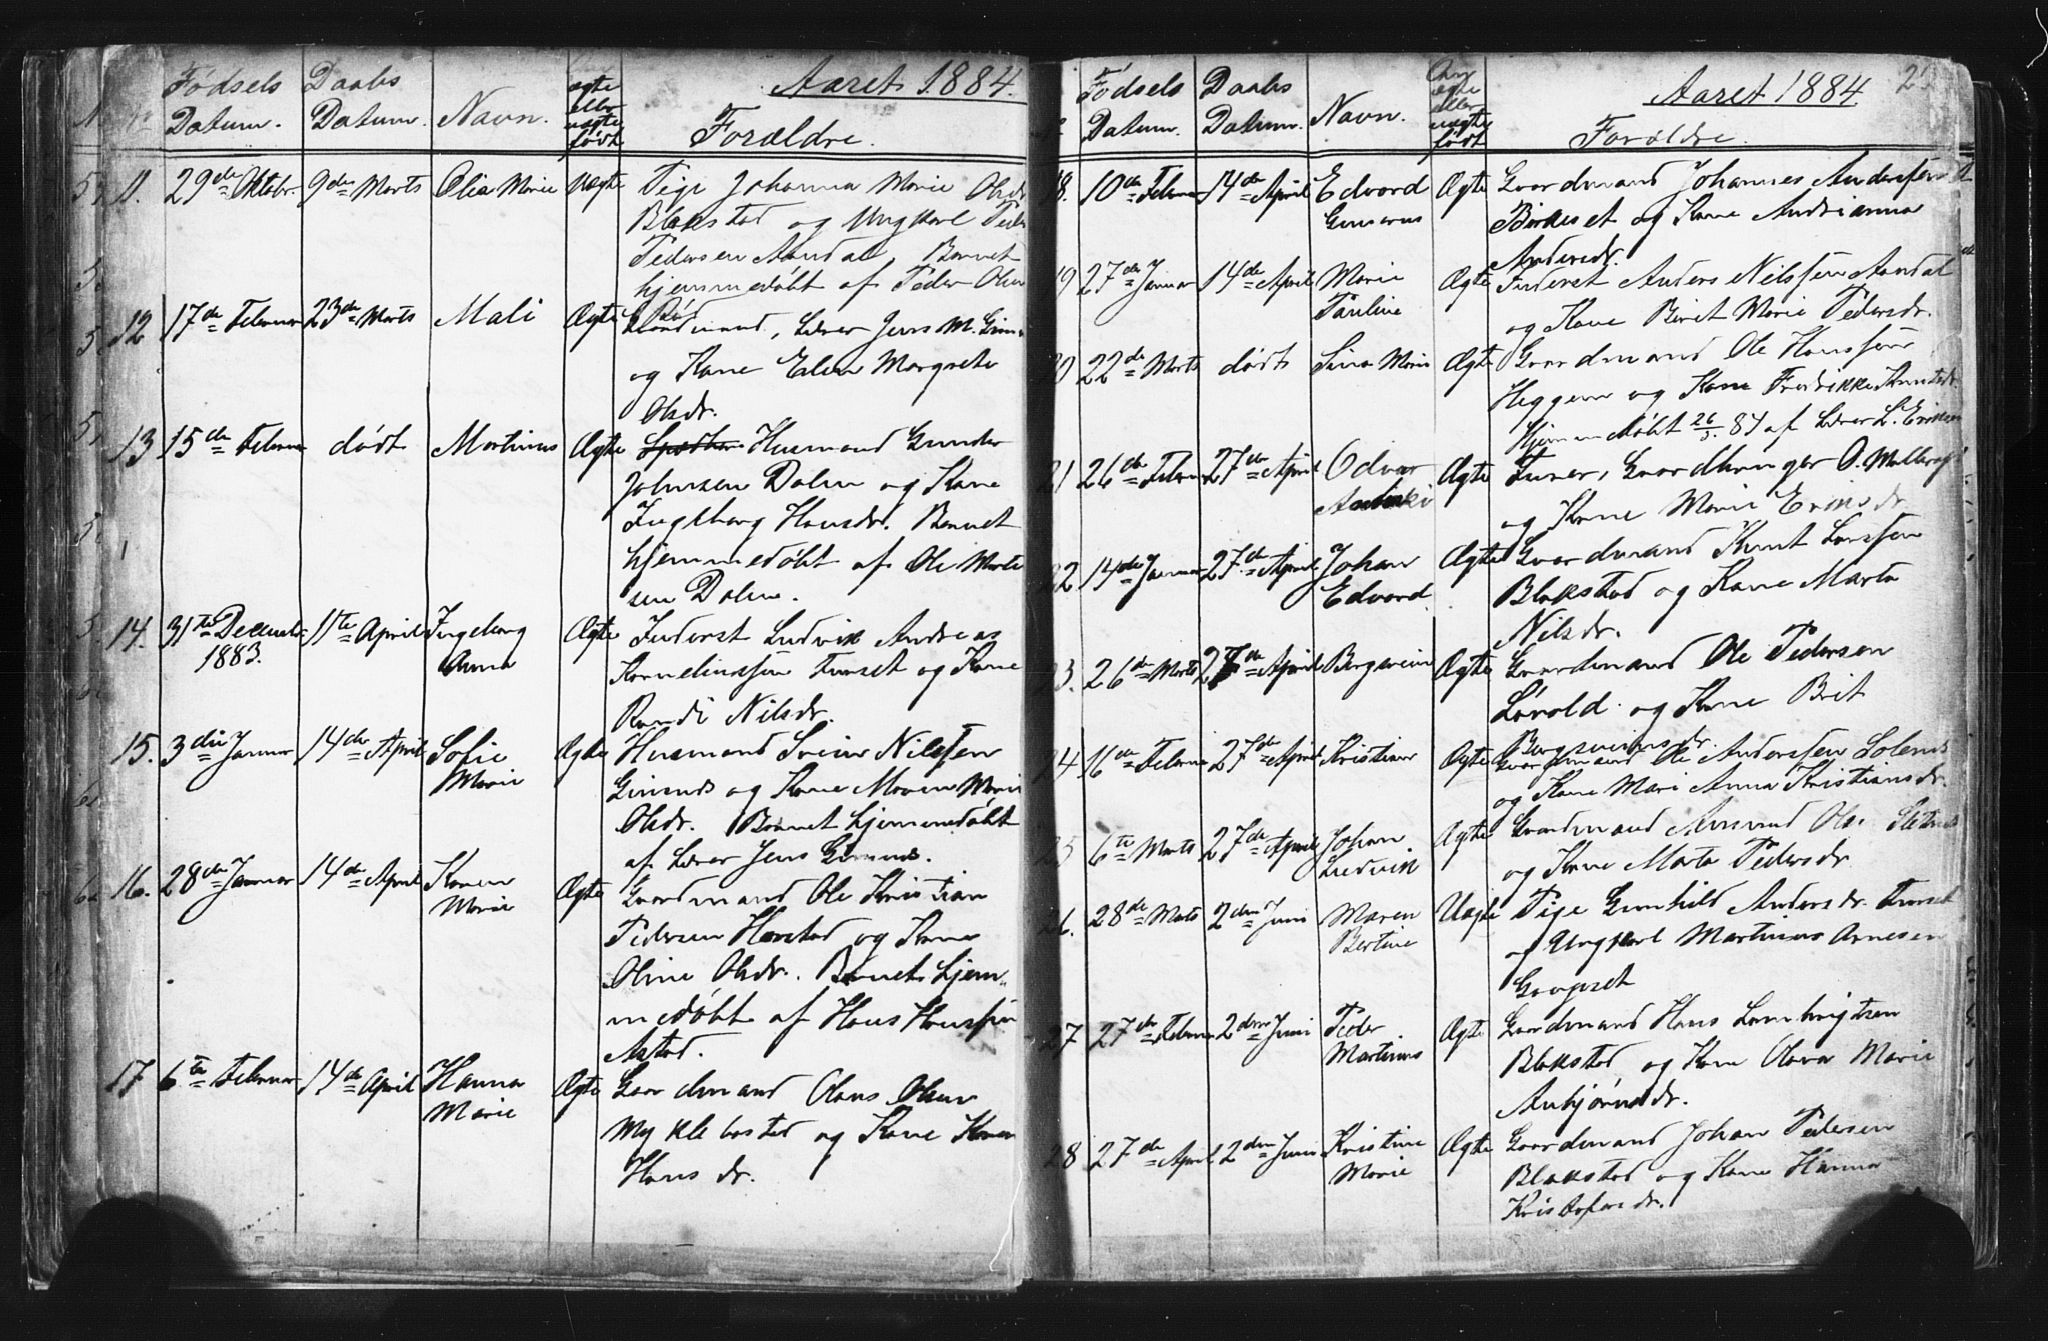 Aaret 1884.
Fødsels Datum. Daabs Datum. Navn. ægte eller uægte født Forældre.
11. 29de Oktobr. 9de Marts Olia Marie Uægte Pige Johanna Marie Olsdr
Blakstad og Ungkarl Peder
Pedersen Aandal. Barnet
hjemmedøbt af Peder Olsen
12 17de Februar 23de Marts Mali Ægte Gaardmand, Lærer Jens M.
og Kone Elen Margrete
Olsdr.
13 15de Februar dødt Martinus Ægte Husmand Gunder
Johnsen Dalen og Kone
Ingeborg Hansdr. Barnet
hjemmedøbt af Ole
sen Dalen.
14. 31te Decembr 11te April Ingeborg Ægte Inderst Ludvik Andreas
1883. Anna Kornelinssen Furset og Kone
Randi Nilsdr.
15. 3die Januar 14de April Sofie Ægte Husmand Svein Nilssen
Marie og Kone Maren Marie
Olsdr. Barnet hjemmedøbt
af Lærer Jens
16. 28de Januar 14de April Karen Ægte Gaardmand Ole Kristian
Marie Pedersen Harstad og Kone
Oline Olsdr. Barnet hjem-
medøbt af Hans Hanssen
17 6te Februar 14de April Hanna Ægte Gaardmand Olaus Olsen
Marie Myklebostad og Kone Karen
Hansdr.
Aaret 1884
Fødsels Datum. Daabs Datum. Navn. Om ægte eller uægte født Forældre.
18. 10de Februar 14de April Edvard Ægte Gaardmand Johannes Anderssen
Gunerus og Kone Andrianna
Andersdr.
19 27de Januar 14de April Marie Ægte Inderst Anders Nilssen Aandal
Pauline og Kone Berit Marie Pedersdr.
20 22de Marts dødt Sina Marie Ægte Gaardmand Ole Hanssen
Heggem og Kone Fredrikke Knutsdr.
Hjemmedøbt 26/3. 84 af Lærer L. Eriksen
21 26de Februar 27de April Odvar Ægte Gaardbruger O.
og Kone Marie Eriksdr
22 14de Januar 27de April Johan Ægte Gaardmand Knut Larssen
Edvard. Blakstad og Kone Marta
Nilsdr.
23. 26de Marts 27de April Bergsvein Ægte Gaardmand Ole Pedersen
Løvold. og Kone Brit
Bergsveinsdr.
24 16de Februar 27de April Kristian Ægte Gaardmand Ole Anderssen
og Kone Mari Anna Kristiansdr.
25 6te Marts 27de April Johan Ægte Gaardmand Amund Olsen
Ludvik og Kone Marta Pedersdr.
26. 28de Marts 2den Juni Maren Uægte Pige Gunhild Andersdr. Furset
Bertine og Ungkarl Martinus Arnesen
Gaupset
27 27de Februar 2den Juni Peder Ægte Gaardmand Hans Lambrigtsen
Martinus Blakstad og Kone Olava Marie
Asbjørnsdr.
28 27de April 2den Juni Kristine Ægte Gaardmand Johan Pedersen
Marie Blakstad og Kone Hanna
Kristofersdr.